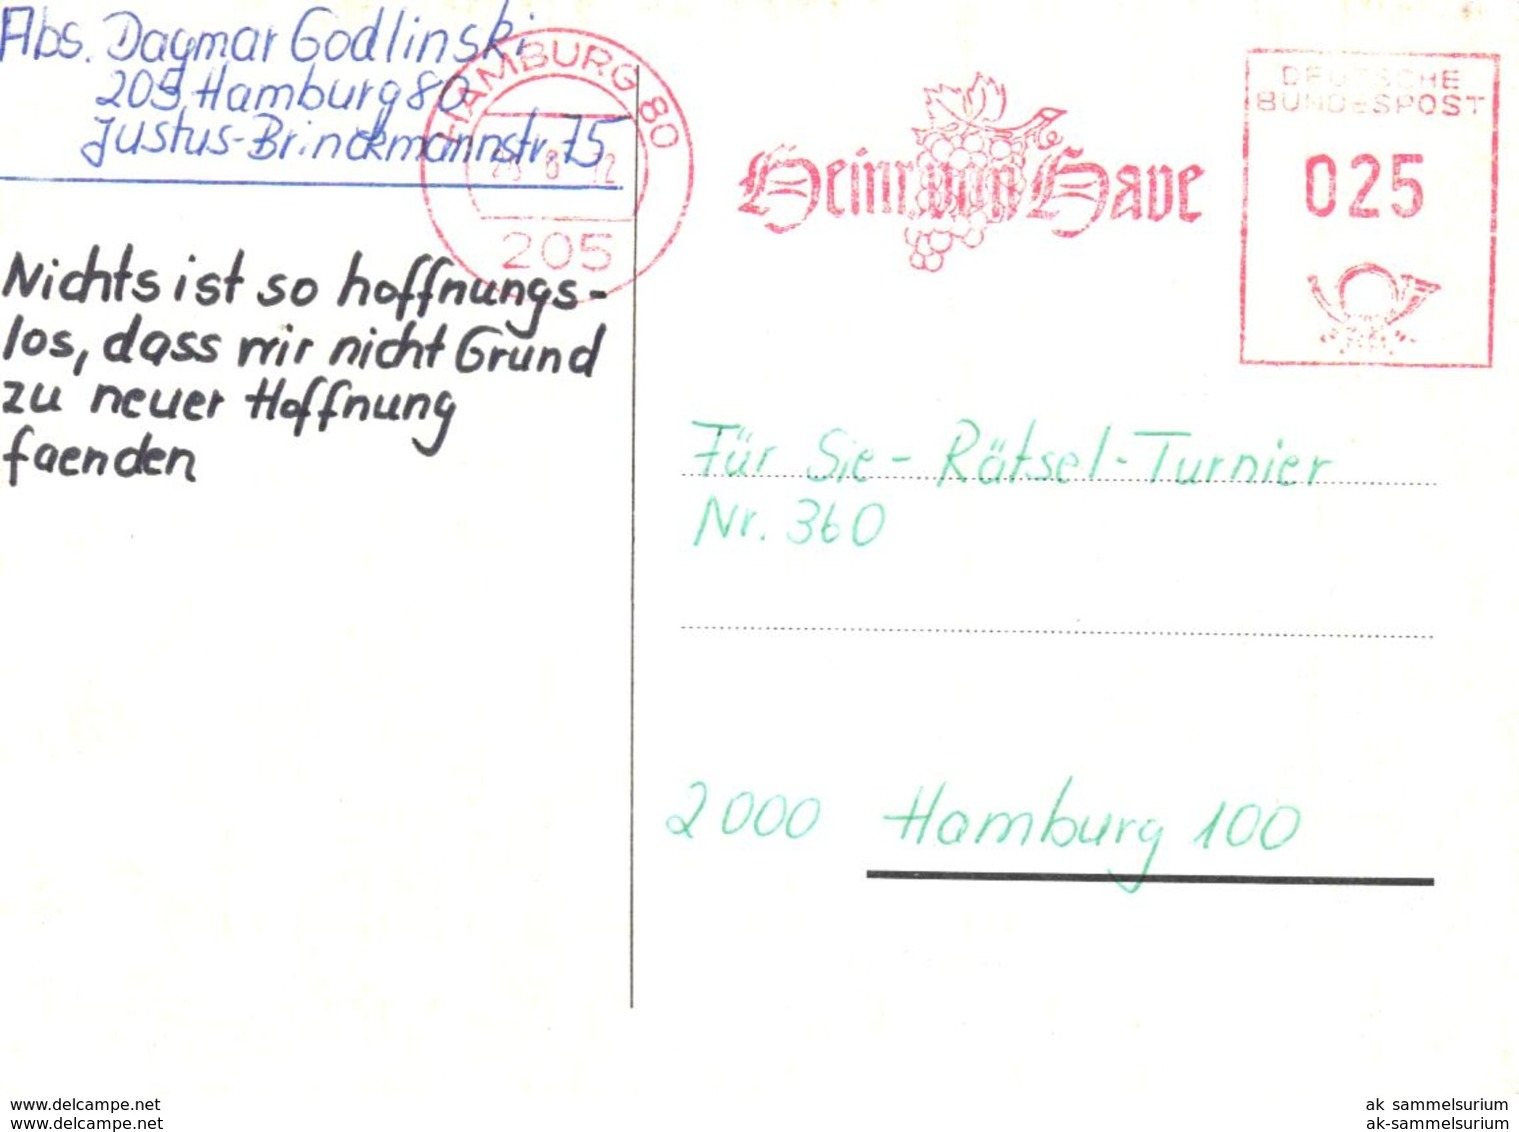 Abs. Dagmar Godlinski
205 Hamburg 80
Justus-Brinckmannstr. 75
HAMBURG 80
205
Heinr. von Have
DEUTSCHE
BUNDESPOST
025
Nichts ist so hoffnungs-
los, dass wir nicht Grund
zu neuer Hoffnung
faenden
Für Sie - Rätsel-Turnier
Nr. 360
2000 Hamburg 100
www.delcampe.net
www.delcampe.net
ak_sammelsurium
ak-sammelsurium